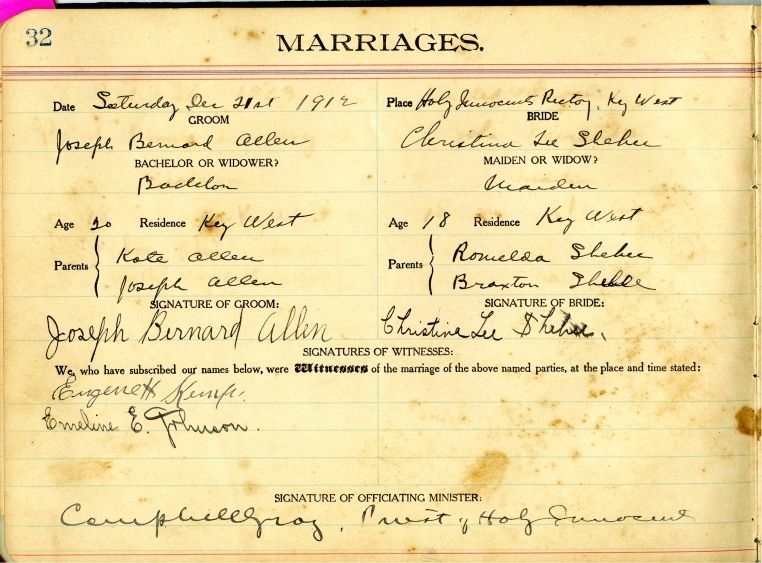 32
MARRIAGES.
Date Saturday Dec 21st 1912 Place Holy Innocents Rectory, Key West
GROOM BRIDE
Joseph Bernard Allen Christina Lee
BACHELOR OR WIDOWER? MAIDEN OR WIDOW?
Bachelor Maiden
Age 20 Residence Key West Age 18 Residence Key West
Parents Kate Allen Romelda
Joseph Allen Parents Braxton
SIGNATURE OF GROOM: SIGNATURE OF BRIDE:
Joseph Bernard Allen Christine Lee
SIGNATURES OF WITNESSES:
We, who have subscribed our names below, were Witnesses of the marriage of the above named parties, at the place and time stated:
Eugene H Kemp.
Emeline E. Johnson.
SIGNATURE OF OFFICIATING MINISTER:
Campbell Gray, Priest of Holy Innocents